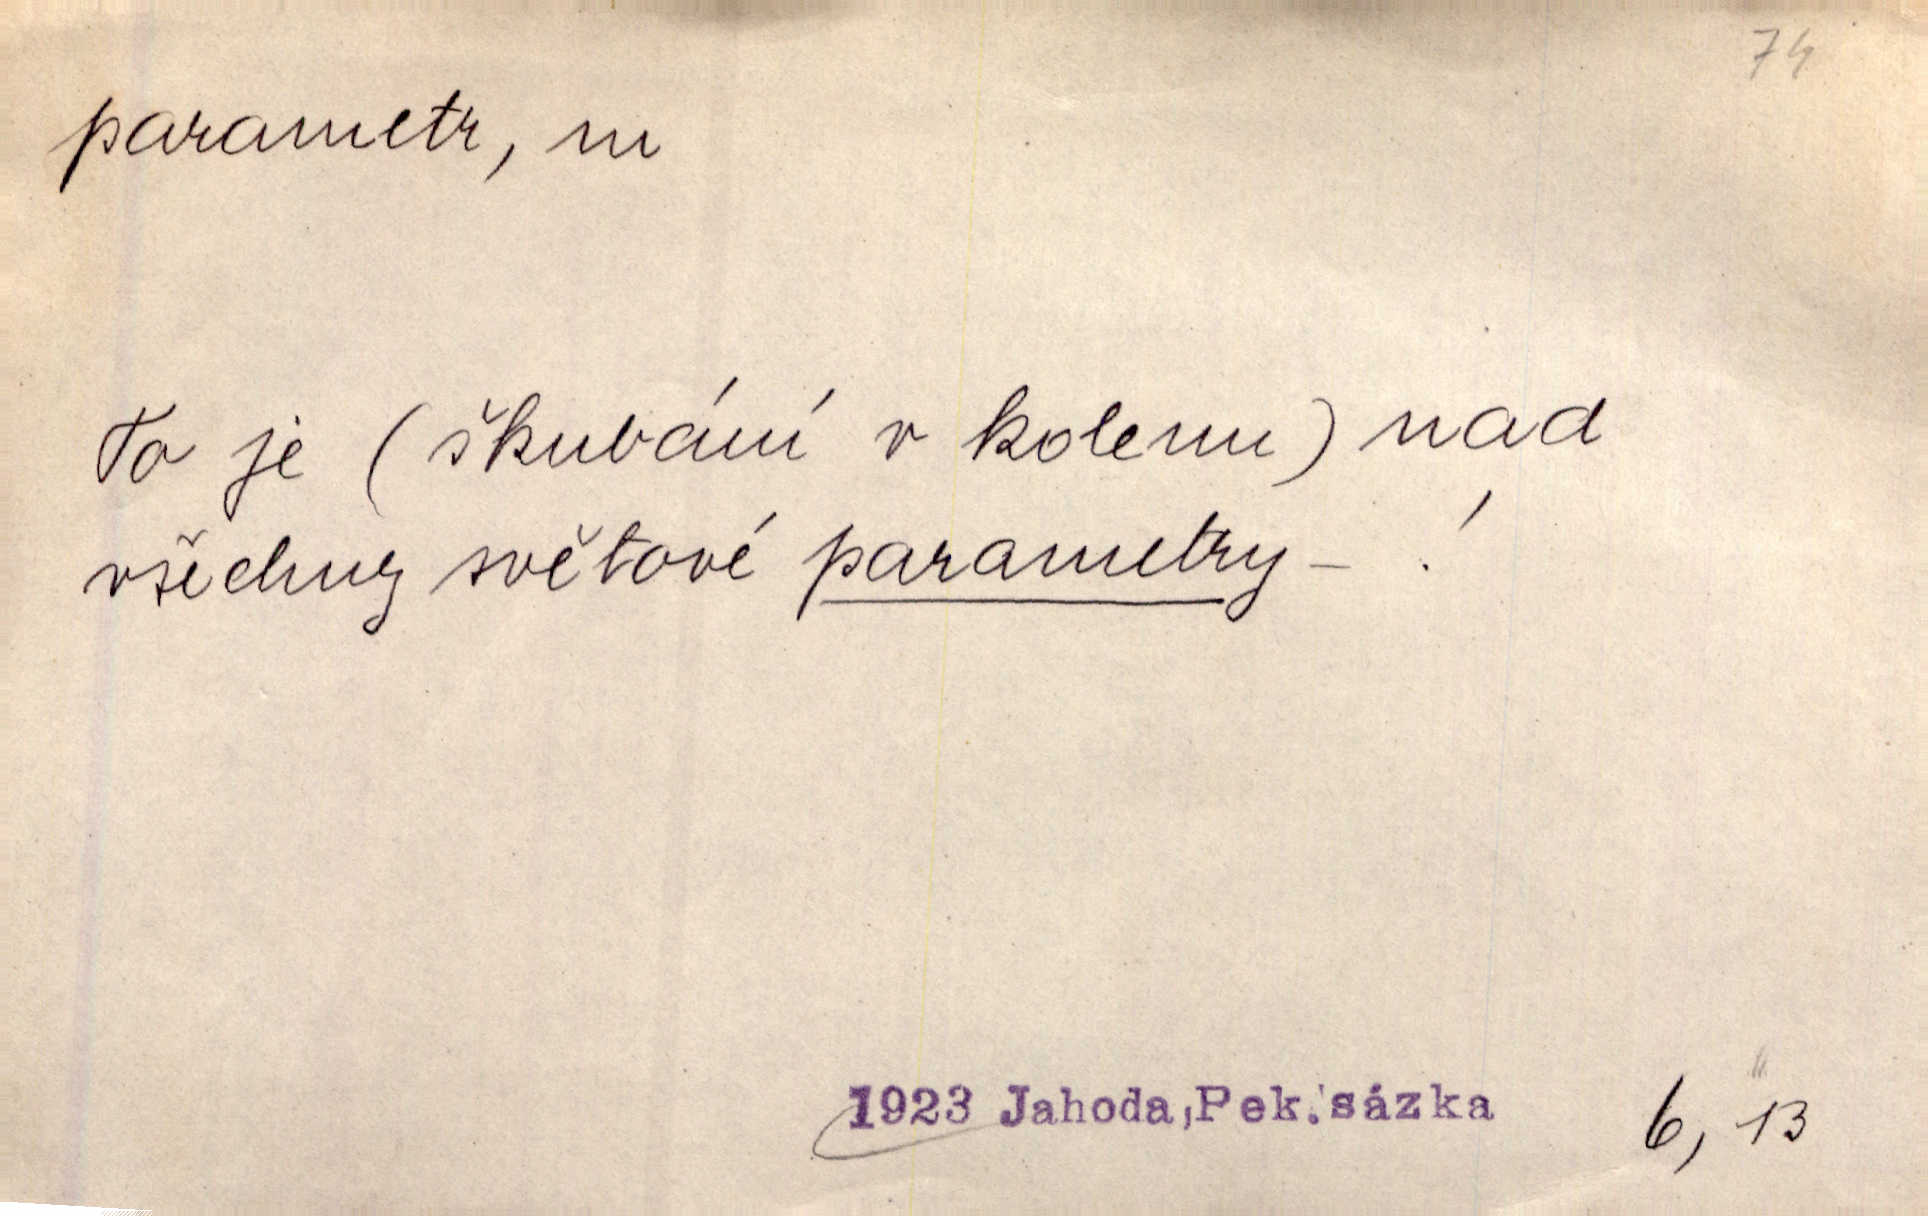 74
parametr, m
To je (škubání v kolenu) nad
všechny světové parametry - !
1923 Jahoda, Pek. sázka 6, 13